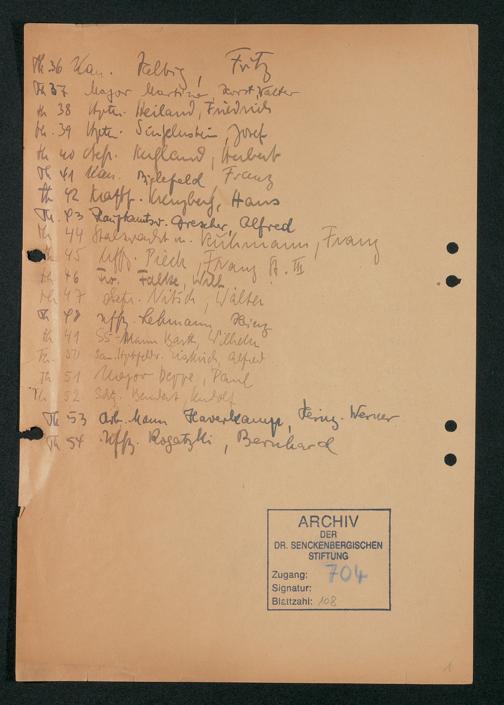 Th 36 Kan. Helbig, Fritz
Th 37 Major Horst, Walter
Th 38 Hptm. Heiland, Friedrich
Th. 39 Hptm. Josef
Th 40 Gefr. Herbert
Th 41 Kan. Bielefeld Franz
Th 42 Kreuzberg, Hans
Th. 43 Drescher, Alfred
Th 44 Kuhmann, Franz
Th 45 Uffz. Pieck, Franz
Th 46 Falke, Willi
Th 47 Gefr. Nitsch, Walter
Th 48 Uffz. Lehmann Heinz
Th 49 SS-Mann Barth, Wilhelm
Th. 50 Alfred
Th 51 Major Deppe, Paul
Th 52 Rudolf
Th 53 Arb. Mann Haverkamp, Heinz-Werner
Th 54 Uffz. Rogatzki, Bernhard
ARCHIV
DER
DR. SENCKENBERGISCHEN
STIFTUNG
Zugang: 704
Signatur:
Blattzahl: 108
1